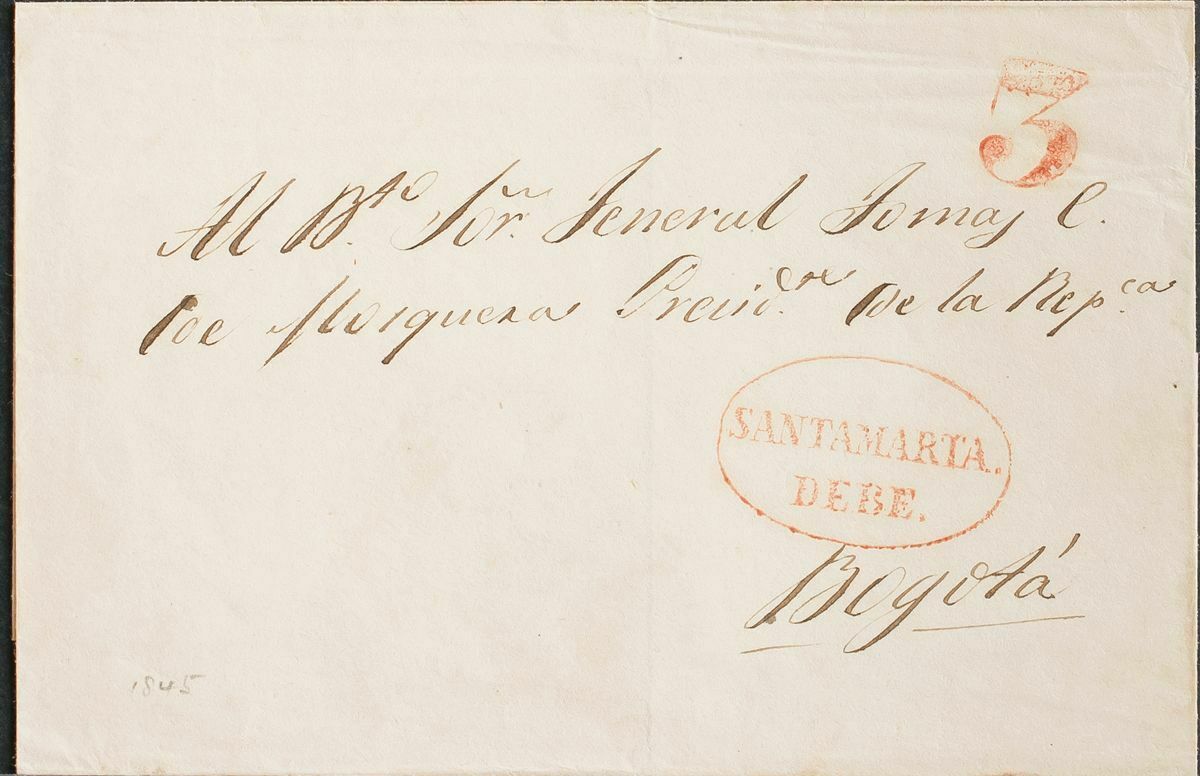 3
Al B.to Sōr. Jeneral Tomas C.
de Mosquera Presid.te de la Rep.ca
SANTAMARTA.
DEBE.
Bogotá
1845